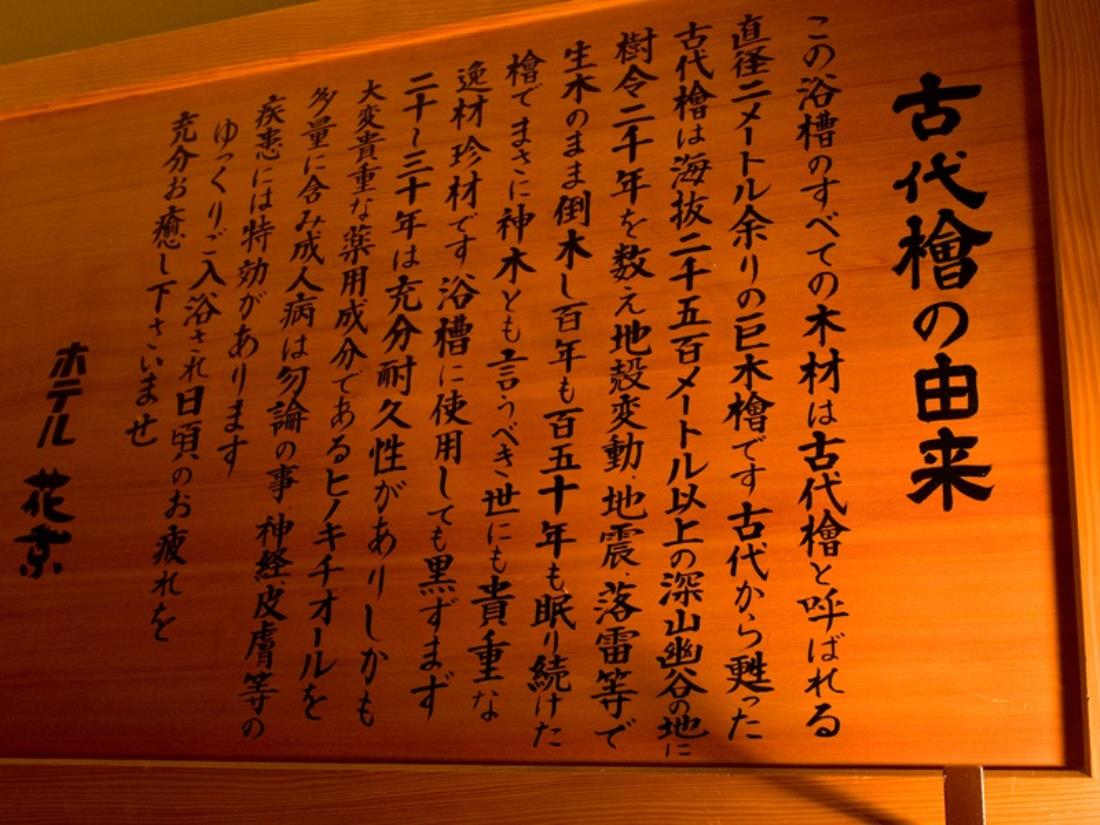 古代檜の由来
この浴槽のすべての木材は古代檜と呼ばれる
直径二メートル余りの巨木檜です古代から甦った
古代檜は海抜二千五百メートル以上の深山幽谷の地に
樹令二千年を数え地殻変動、地震、落雷等で
生木のまま倒木し百年も百五十年も眠り続けた
檜でまさに神木とも言うべき世にも貴重な
逸材珍材です浴槽に使用しても黒ずまず
二十〜三十年は充分耐久性がありしかも
大変貴重な薬用成分であるヒノキチオールを
多量に含み成人病は勿論の事、神経、皮膚等の
疾患には特効があります
ゆっくりご入浴され日頃のお疲れを
充分お癒し下さいませ
ホテル 花京